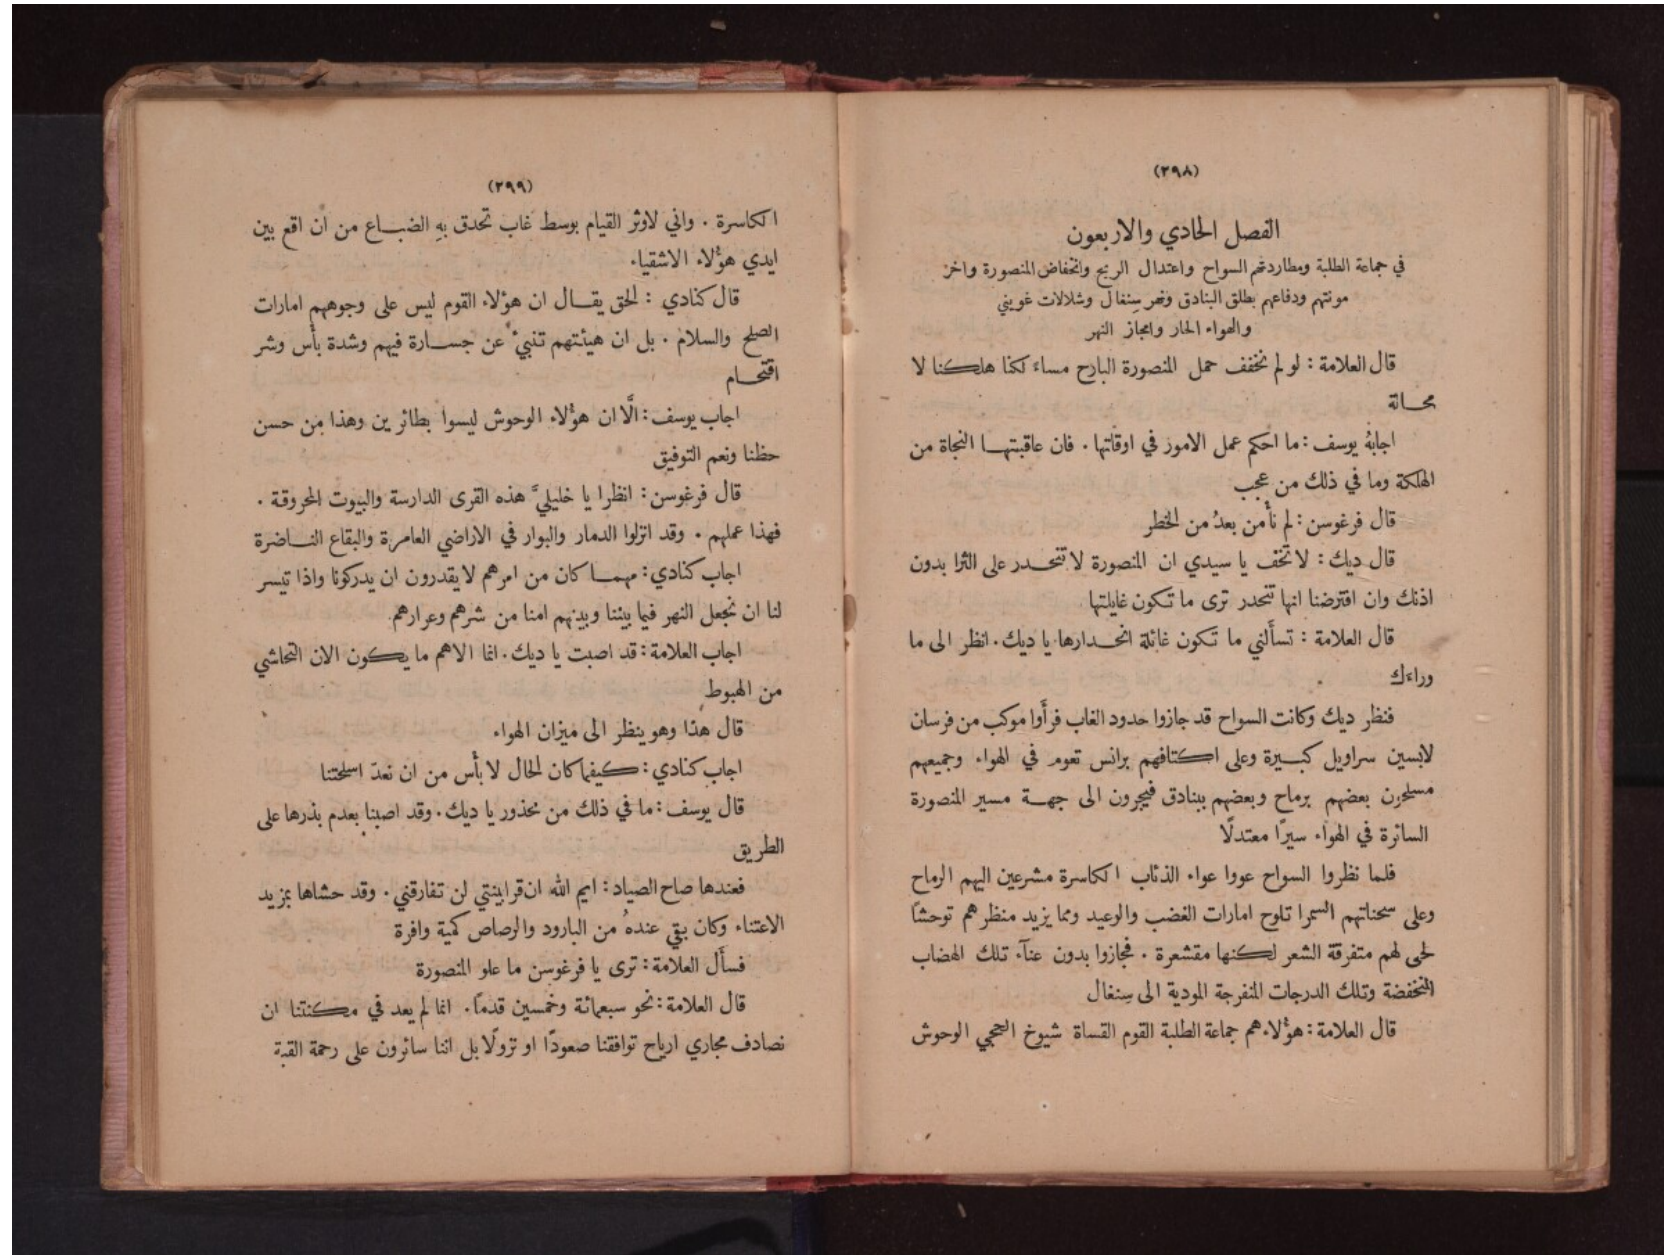 (٢٩٨)
الفصل الحادي والاربعون
في جماعة الطلبة ومطاردتهم السواح واعتدال الريح وانخفاض المنصورة واخر
مونتهم ودفاعهم بطلق البنادق ونهر سِنغال وشلالات غويني
والهواء الحار وامجاز النهر
قال العلامة : لو لم نخفف حمل المنصورة البارح مساءً لكنا هلكنا لا
محالة
اجابهُ يوسف : ما احكم عمل الامور في اوقاتها . فان عاقبتها النجاة من
الهلكة وما في ذلك من عجب
قال فرغوسن : لم نأمن بعدُ من الخطر
قال ديك : لا تخف يا سيدي ان المنصورة لا تنحدر على الثرا بدون
اذنك وان افترضنا انها تنحدر ترى ما تكون غايلتها
قال العلامة : تسأَلني ما تكون غائلة انحدارها يا ديك . انظر الى ما
وراءك
فنظر ديك وكانت السواح قد جازوا حدود الغاب فرأَوا موكب من فرسان
لابسين سراويل كبيرة وعلى اكتافهم برانس تعوم في الهواء وجميعهم
مسلحون بعضهم برماح وبعضهم ببنادق فيجرون الى جهة مسير المنصورة
السائرة في الهواء سيرًا معتدلًا
فلما نظروا السواح عووا عواء الذئاب الكاسرة مشرعين اليهم الرماح
وعلى سحناتهم السمرا تلوح امارات الغضب والوعيد ومما يزيد منظرهم توحشًا
لحى لهم متفرقة الشعر لكنها مقشعرة . فجازوا بدون عنآء تلك الهضاب
المنخفضة وتلك الدرجات المنفرجة المودية الى سِنغال
قال العلامة : هؤلاء هم جماعة الطلبة القوم القساة شيوخ العجي الوحوش
(٢٩٩)
الكاسرة . واني لاوثر القيام بوسط غاب تحدق بهِ الضباع من ان اقع بين
ايدي هؤلاء الاشقياء
قال كنادي : الحق يقال ان هؤلاء القوم ليس على وجوههم امارات
الصلح والسلام . بل ان هيئتهم تنبئ عن جسارة فيهم وشدة بأس وشر
اقتحام
اجاب يوسف : الَّا ان هؤلاء الوحوش ليسوا بطائرين وهذا من حسن
حظنا ونعم التوفيق
قال فرغوسن : انظرا يا خليليَّ هذه القرى الدارسة والبيوت المحروقة .
فهذا عملهم . وقد انزلوا الدمار والبوار في الاراضي العامرة والبقاع الناضرة
اجاب كنادي : مهما كان من امرهم لا يقدرون ان يدركونا واذا تيسر
لنا ان نجعل النهر فيما بيننا وبينهم امنا من شرهم وعرارهم
اجاب العلامة : قد اصبت يا ديك . انما الاهم ما يكون الان التحاشي
من الهبوط
قال هذا وهو ينظر الى ميزان الهواء
اجاب كنادي : كيفما كان الحال لا بأس من ان نعدّ اسلحتنا
قال يوسف : ما في ذلك من محذور يا ديك . وقد اصبنا بعدم بذرها على
الطريق
فعندها صاح الصياد : ايم الله ان قرابينتي لن تفارقني . وقد حشاها بمزيد
الاعتناء وكان بقي عندهُ من البارود والرصاص كمية وافرة
فسأَل العلامة : ترى يا فرغوسن ما علو المنصورة
قال العلامة : نحو سبعمائة وخمسين قدمًا . انما لم يعد في مكنتنا ان
نصادف مجاري ارياح توافقنا صعودًا او نزولًا بل اننا سائرون على رحمة القبة